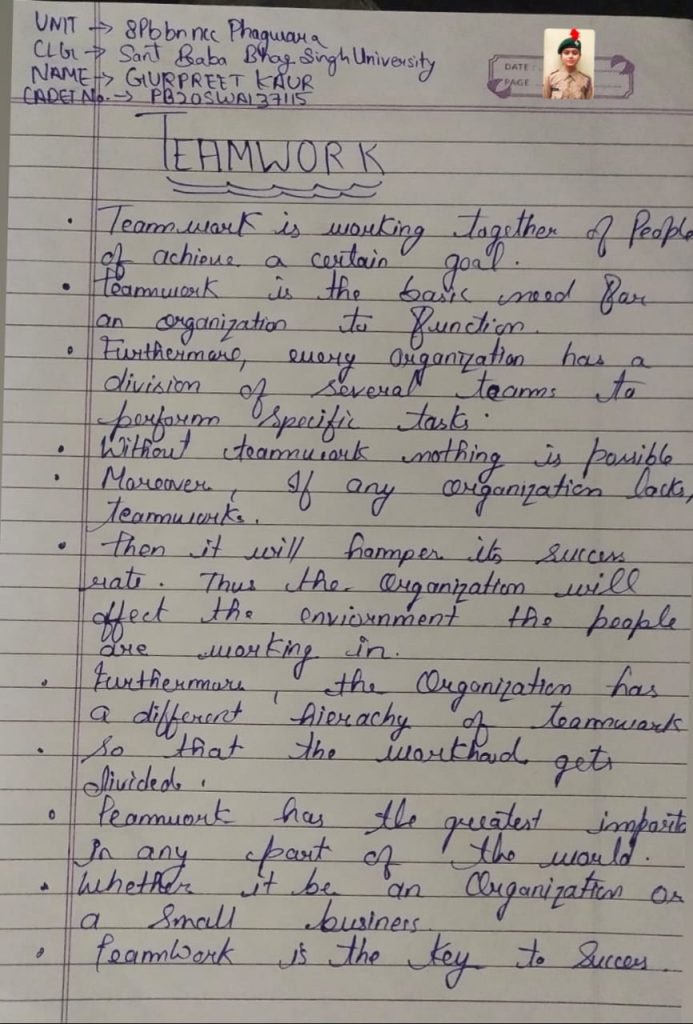 UNIT → 8Pbbnncc Phagwara
CLG → Sant Baba Bhag Singh University
NAME → GURPREET KAUR
CADET No. → PB20SWA137115
DATE :
PAGE :
TEAMWORK
• Teamwork is working together of People
of achieve a certain goal.
• Teamwork is the basic need For
an organization to Function.
• Furthermore, every organization has a
division of several teams to
perform specific tasks.
• Without teamwork nothing is possible
• Moreover, If any organization lacks,
teamworks.
• then it will hamper its success
rate. Thus the Organization will
affect the enviornment the people
are working in.
• Furthermore, the Organization has
a different hierachy of teamwork
• so that the workload gets
divided.
• Teamwork has the greatest
In any part of the world.
• Whether it be an Organization or
a small business.
• TeamWork is the key to Succes.